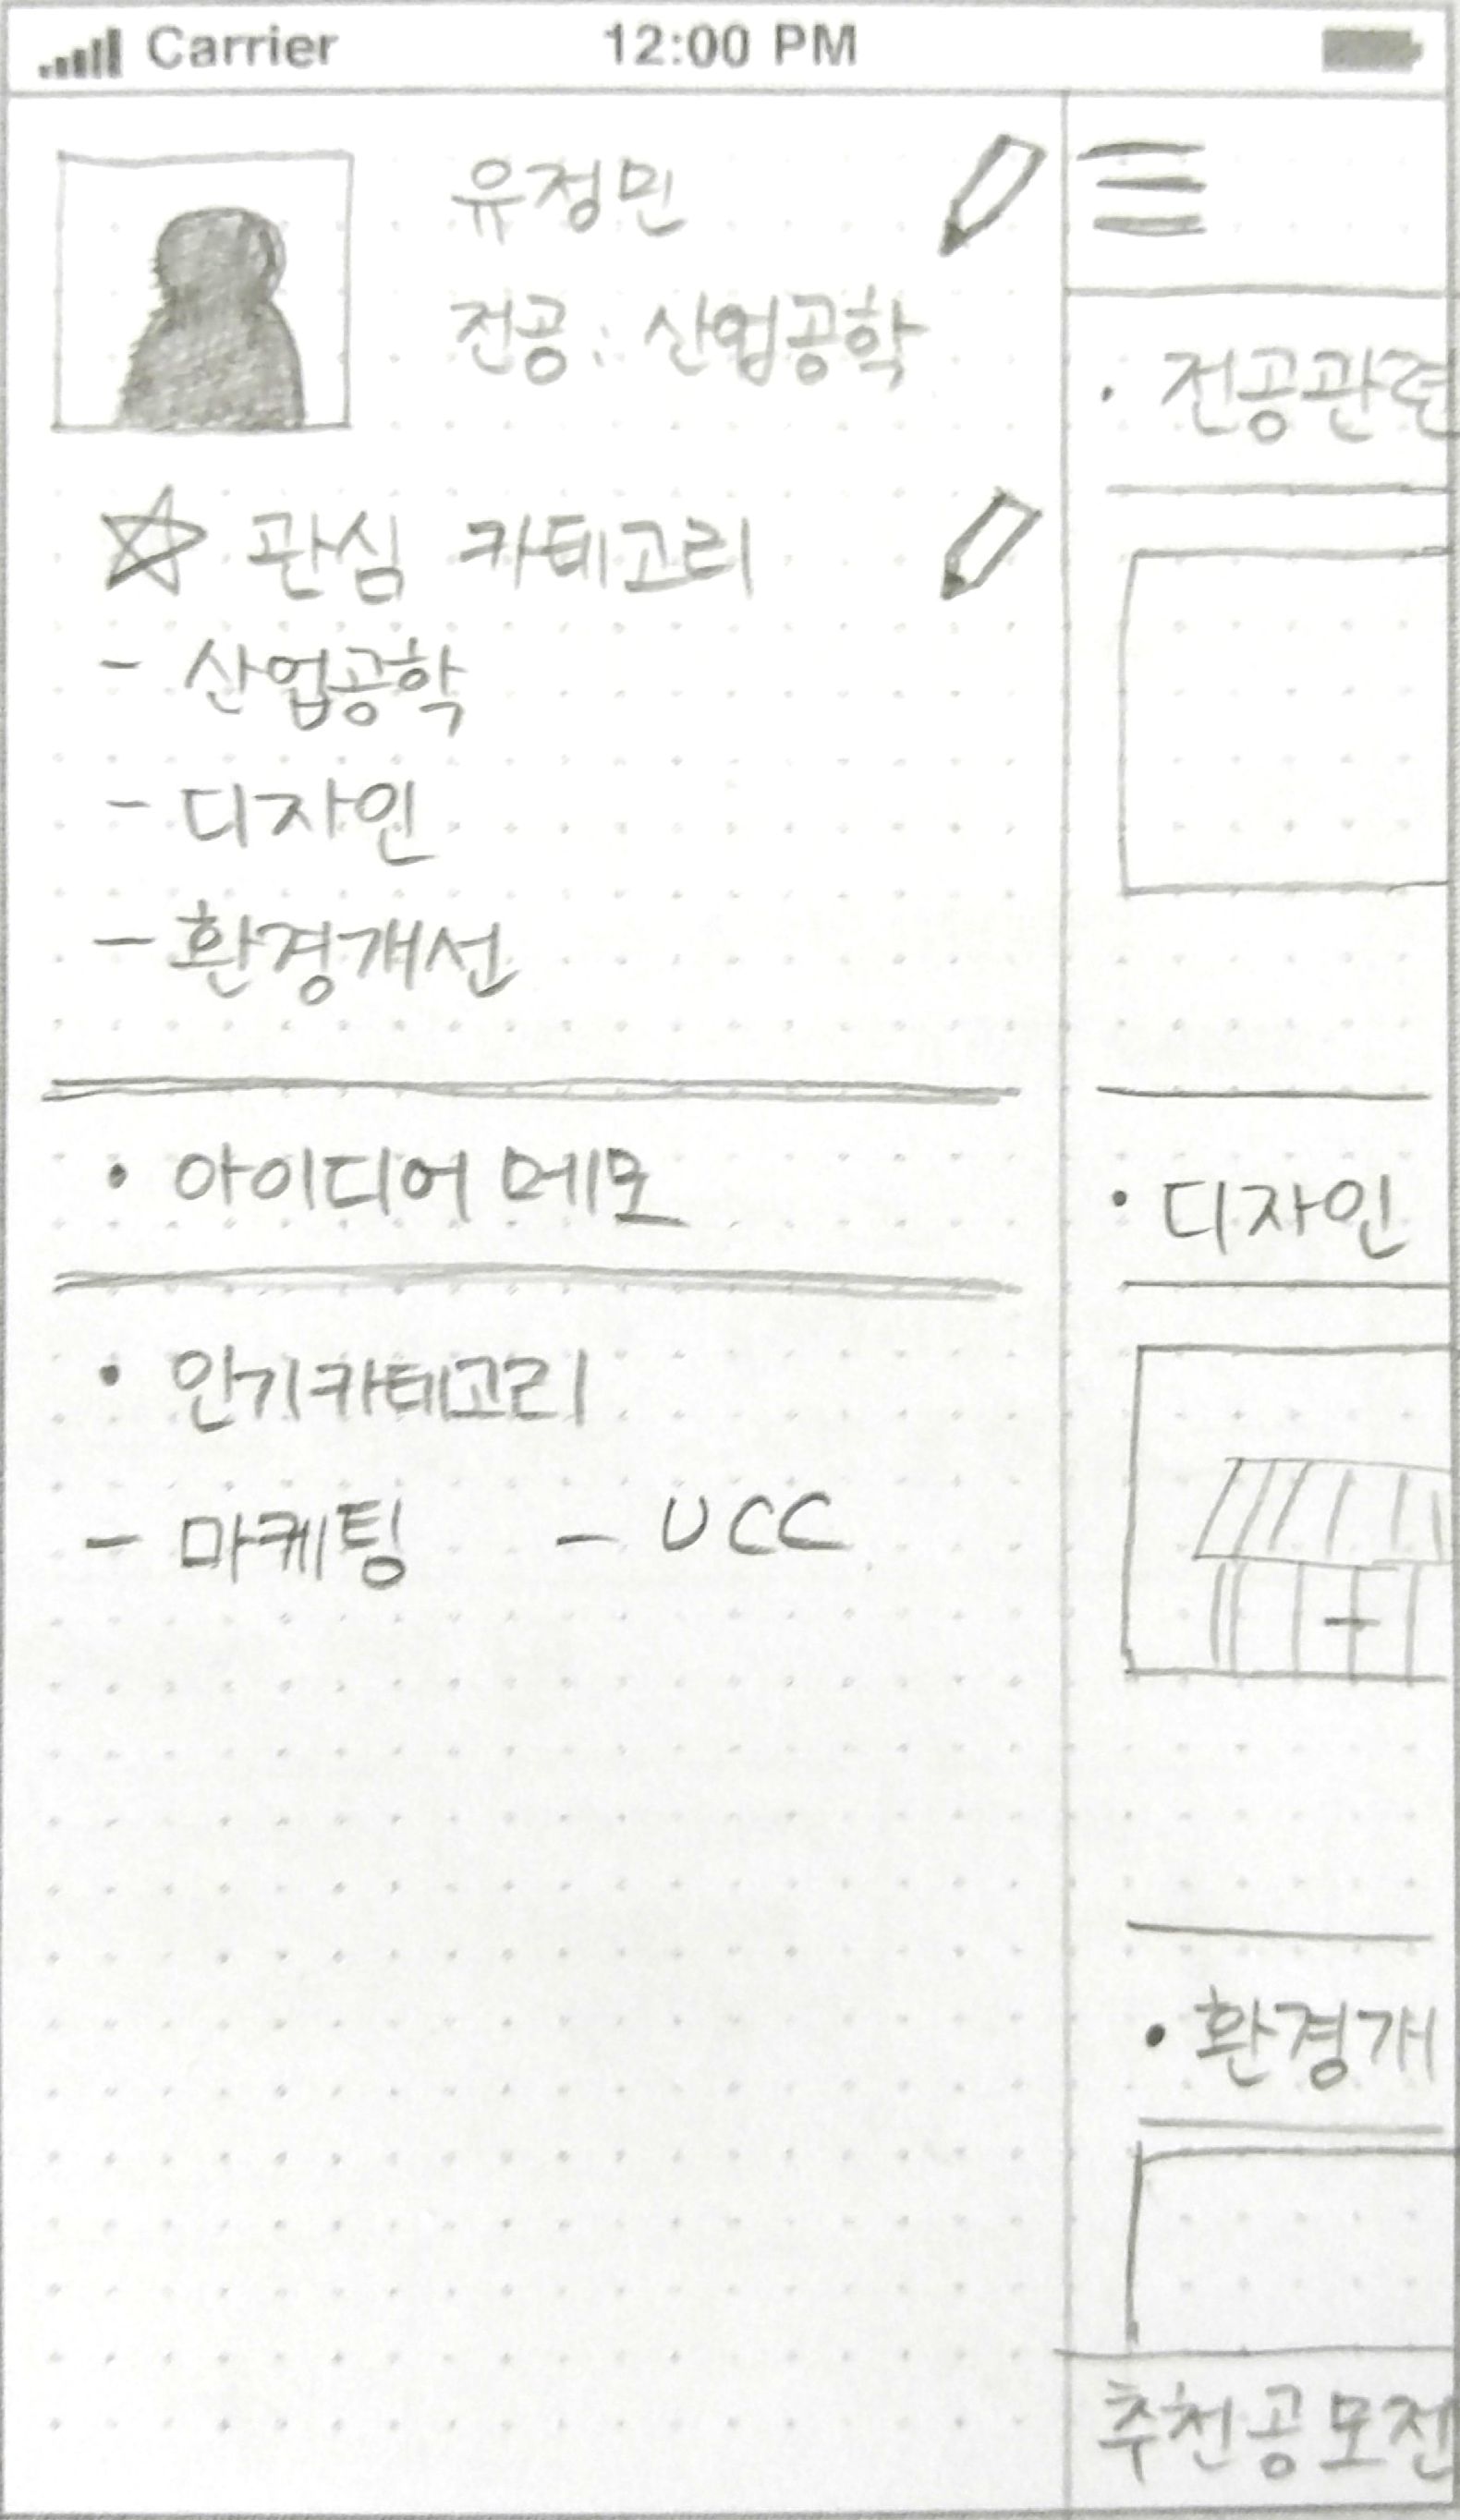 Carrier 12:00 PM
유정민
전공 : 산업공학
관심 카테고리
- 산업공학
- 디자인
- 환경개선
• 아이디어 메모
• 인기카테고리
- 마케팅 - UCC
• 전공관련
• 디자인
• 환경개
추천공모전